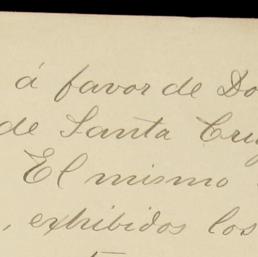 á favor de Do
de Santa Cruz
El mismo
, exhibidos los